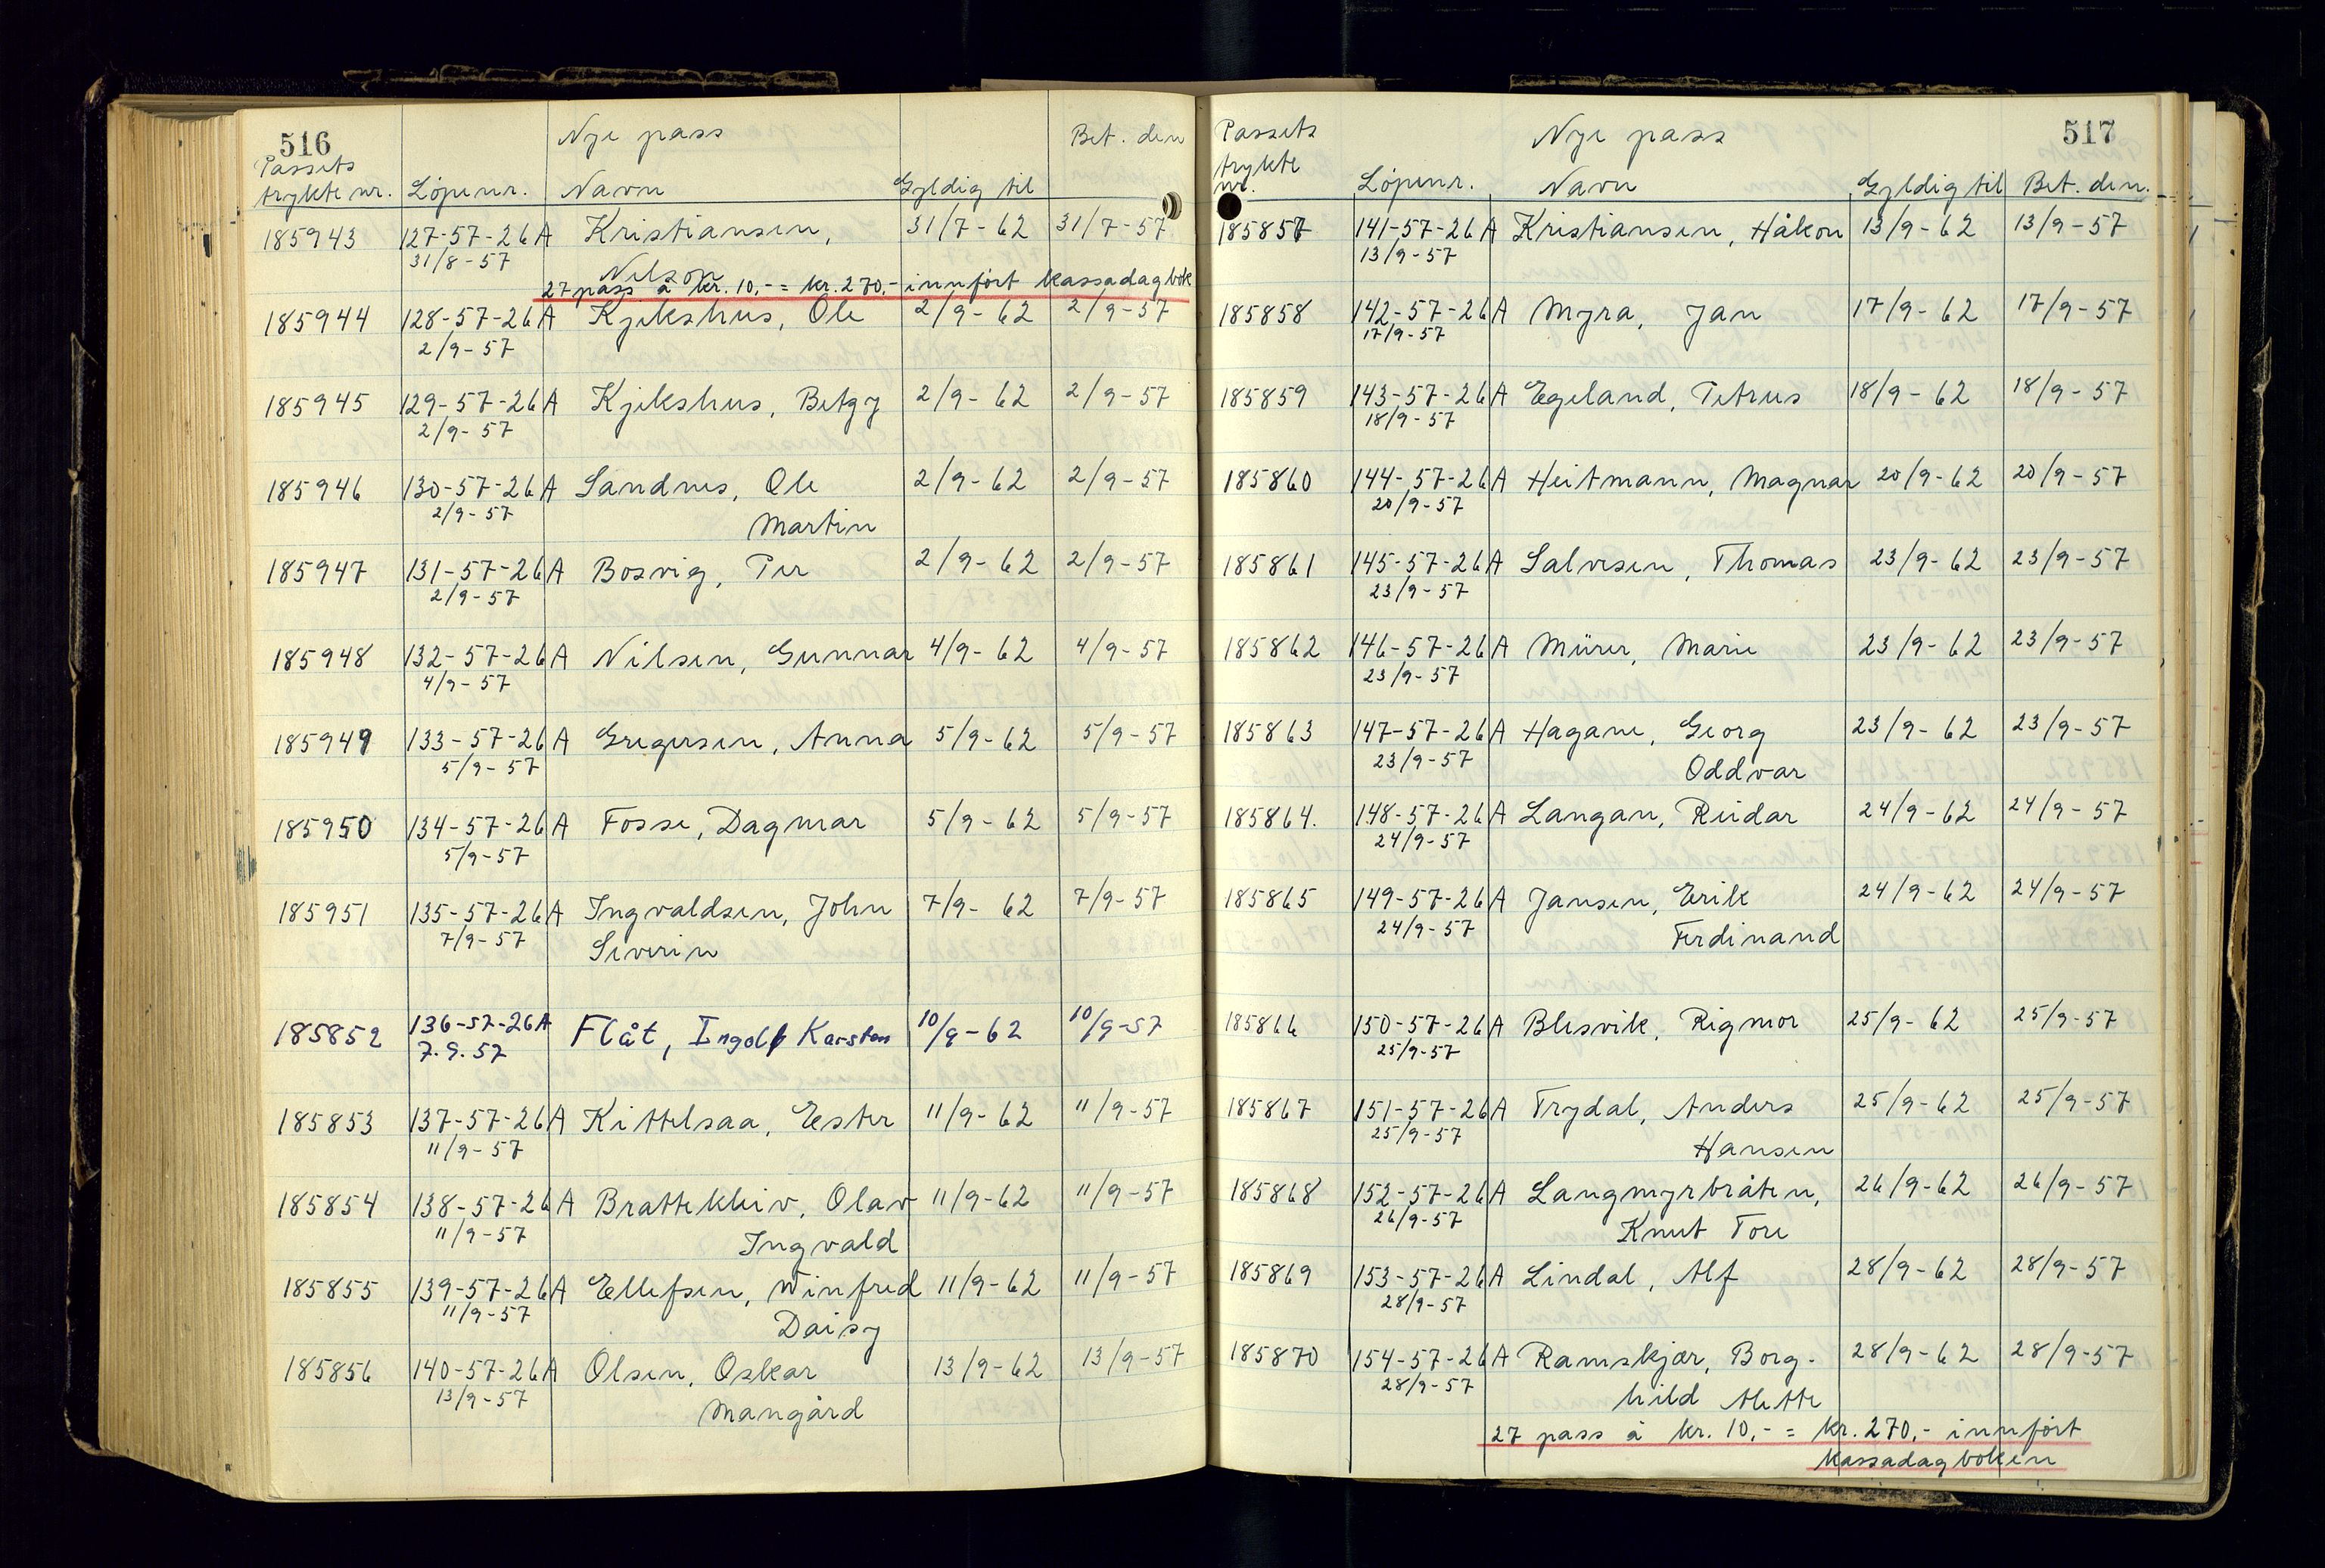 516
Nye pass
Bet. den
Passets
trykte nr. Löpenr. Navn Gyldig til
185943 127-57-26A Kristiansen, 31/7-62 31/7-57
31/8-57 Nilson
27 pass á kr. 10,- = kr. 270,- innført kassadagbok
185944 128-57-26A Kjekshus, Ole 2/9-62 2/9-57
2/9-57
185945 129-57-26A Kjekshus, Betzy 2/9-62 2/9-57
2/9-57
185946 130-57-26A Sandnes, Ole 2/9-62 2/9-57
2/9-57 Martin
185947 131-57-26A Bosvig, Per 2/9-62 2/9-57
2/9-57
185948 132-57-26A Nilsen, Gunnar 4/9-62 4/9-57
4/9-57
185949 133-57-26A Gregersen, Anna 5/9-62 5/9-57
5/9-57
185950 134-57-26A Fosse, Dagmar 5/9-62 5/9-57
5/9-57
185951 135-57-26A Ingvaldsen, John 7/9-62 7/9-57
7/9-57 Severin
185852 136-57-26A Flåt, Ingolf Karsten 10/9-62 10/9-57
7.9.57
185853 137-57-26A Kittelsaa, Ester 11/9-62 11/9-57
11/9-57
185854 138-57-26A Brattekleiv, Olav 11/9-62 11/9-57
11/9-57 Ingvald
185855 139-57-26A Ellefsen, Winfred 11/9-62 11/9-57
11/9-57 Daisy
185856 140-57-26A Olsen, Oskar 13/9-62 13/9-57
13/9-57 Mangård
Passets Nye pass 517
trykte
nr. Löpenr. Navn Gyldig til Bet. den.
185857 141-57-26A Kristiansen, Håkon 13/9-62 13/9-57
13/9-57
185858 142-57-26A Myra, Jan 17/9-62 17/9-57
17/9-57
185859 143-57-26A Egeland, Petrus 18/9-62 18/9-57
18/9-57
185860 144-57-26A Heitmann, Magnar 20/9-62 20/9-57
20/9-57
185861 145-57-26A Salvesen, Thomas 23/9-62 23/9-57
23/9-57
185862 146-57-26A Mürer, Marie 23/9-62 23/9-57
23/9-57
185863 147-57-26A Hagane, Georg 23/9-62 23/9-57
23/9-57 Oddvar
185864. 148-57-26A Langan, Reidar 24/9-62 24/9-57
24/9-57
185865 149-57-26A Jansen, Erik 24/9-62 24/9-57
24/9-57 Ferdinand
185866 150-57-26A Blesvik, Rigmor 25/9-62 25/9-57
25/9-57
185867 151-57-26A Trydal, Anders 25/9-62 25/9-57
25/9-57 Hansen
185868 152-57-26A Langmyrbråten, 26/9-62 26/9-57
26/9-57 Knut Tore
185869 153-57-26A Lindal, Alf 28/9-62 28/9-57
28/9-57
185870 154-57-26A Ramskjær, Borg- 28/9-62 28/9-57
28/9-57 hild Alette
27 pass á kr. 10,- = kr. 270,- innført
kassadagboken